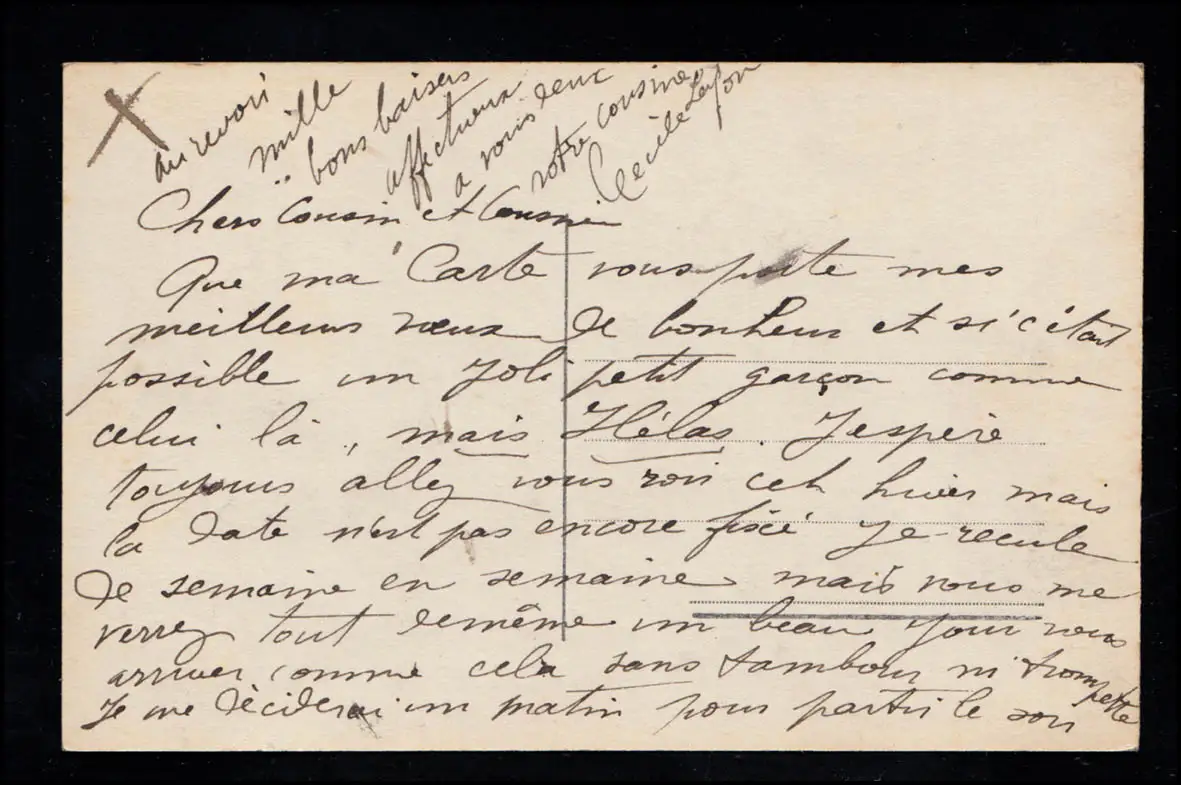 au revoir
mille
bons baisers
affectueux
a vous deux
votre cousine
Cecile Leyon
Chers Cousin et Cousine
Que ma Carte vous porte mes
meilleurs vœux de bonheur et si c'était
possible un Joli petit garçon comme
celui là, mais Hélas. J'espère
toujours allez vous voir cet hiver mais
la date n'est pas encore fixé Je recule
de semaine en semaine mais vous me
verrez tout demême un beau jour vous
arriver comme cela sans tambour ni trompette
Je me déciderai un matin pour partir le soir